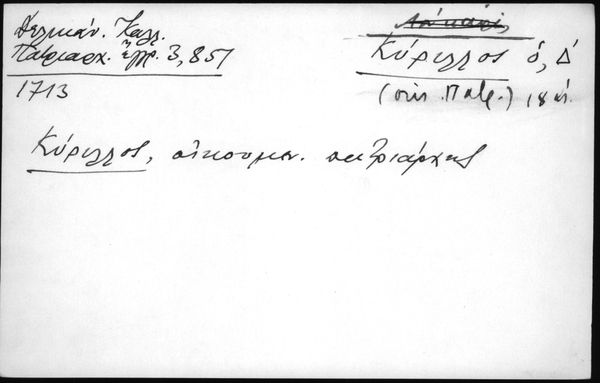 Δελικάν. Καλλ.
Πατριαρχ. ἔγγρ. 3, 851
1713
Κύριλλος ὁ, Δ΄
(οἰκ. Πατρ.) 18 αἰ.
Κύριλλος, οἰκουμεν. πατριάρχης